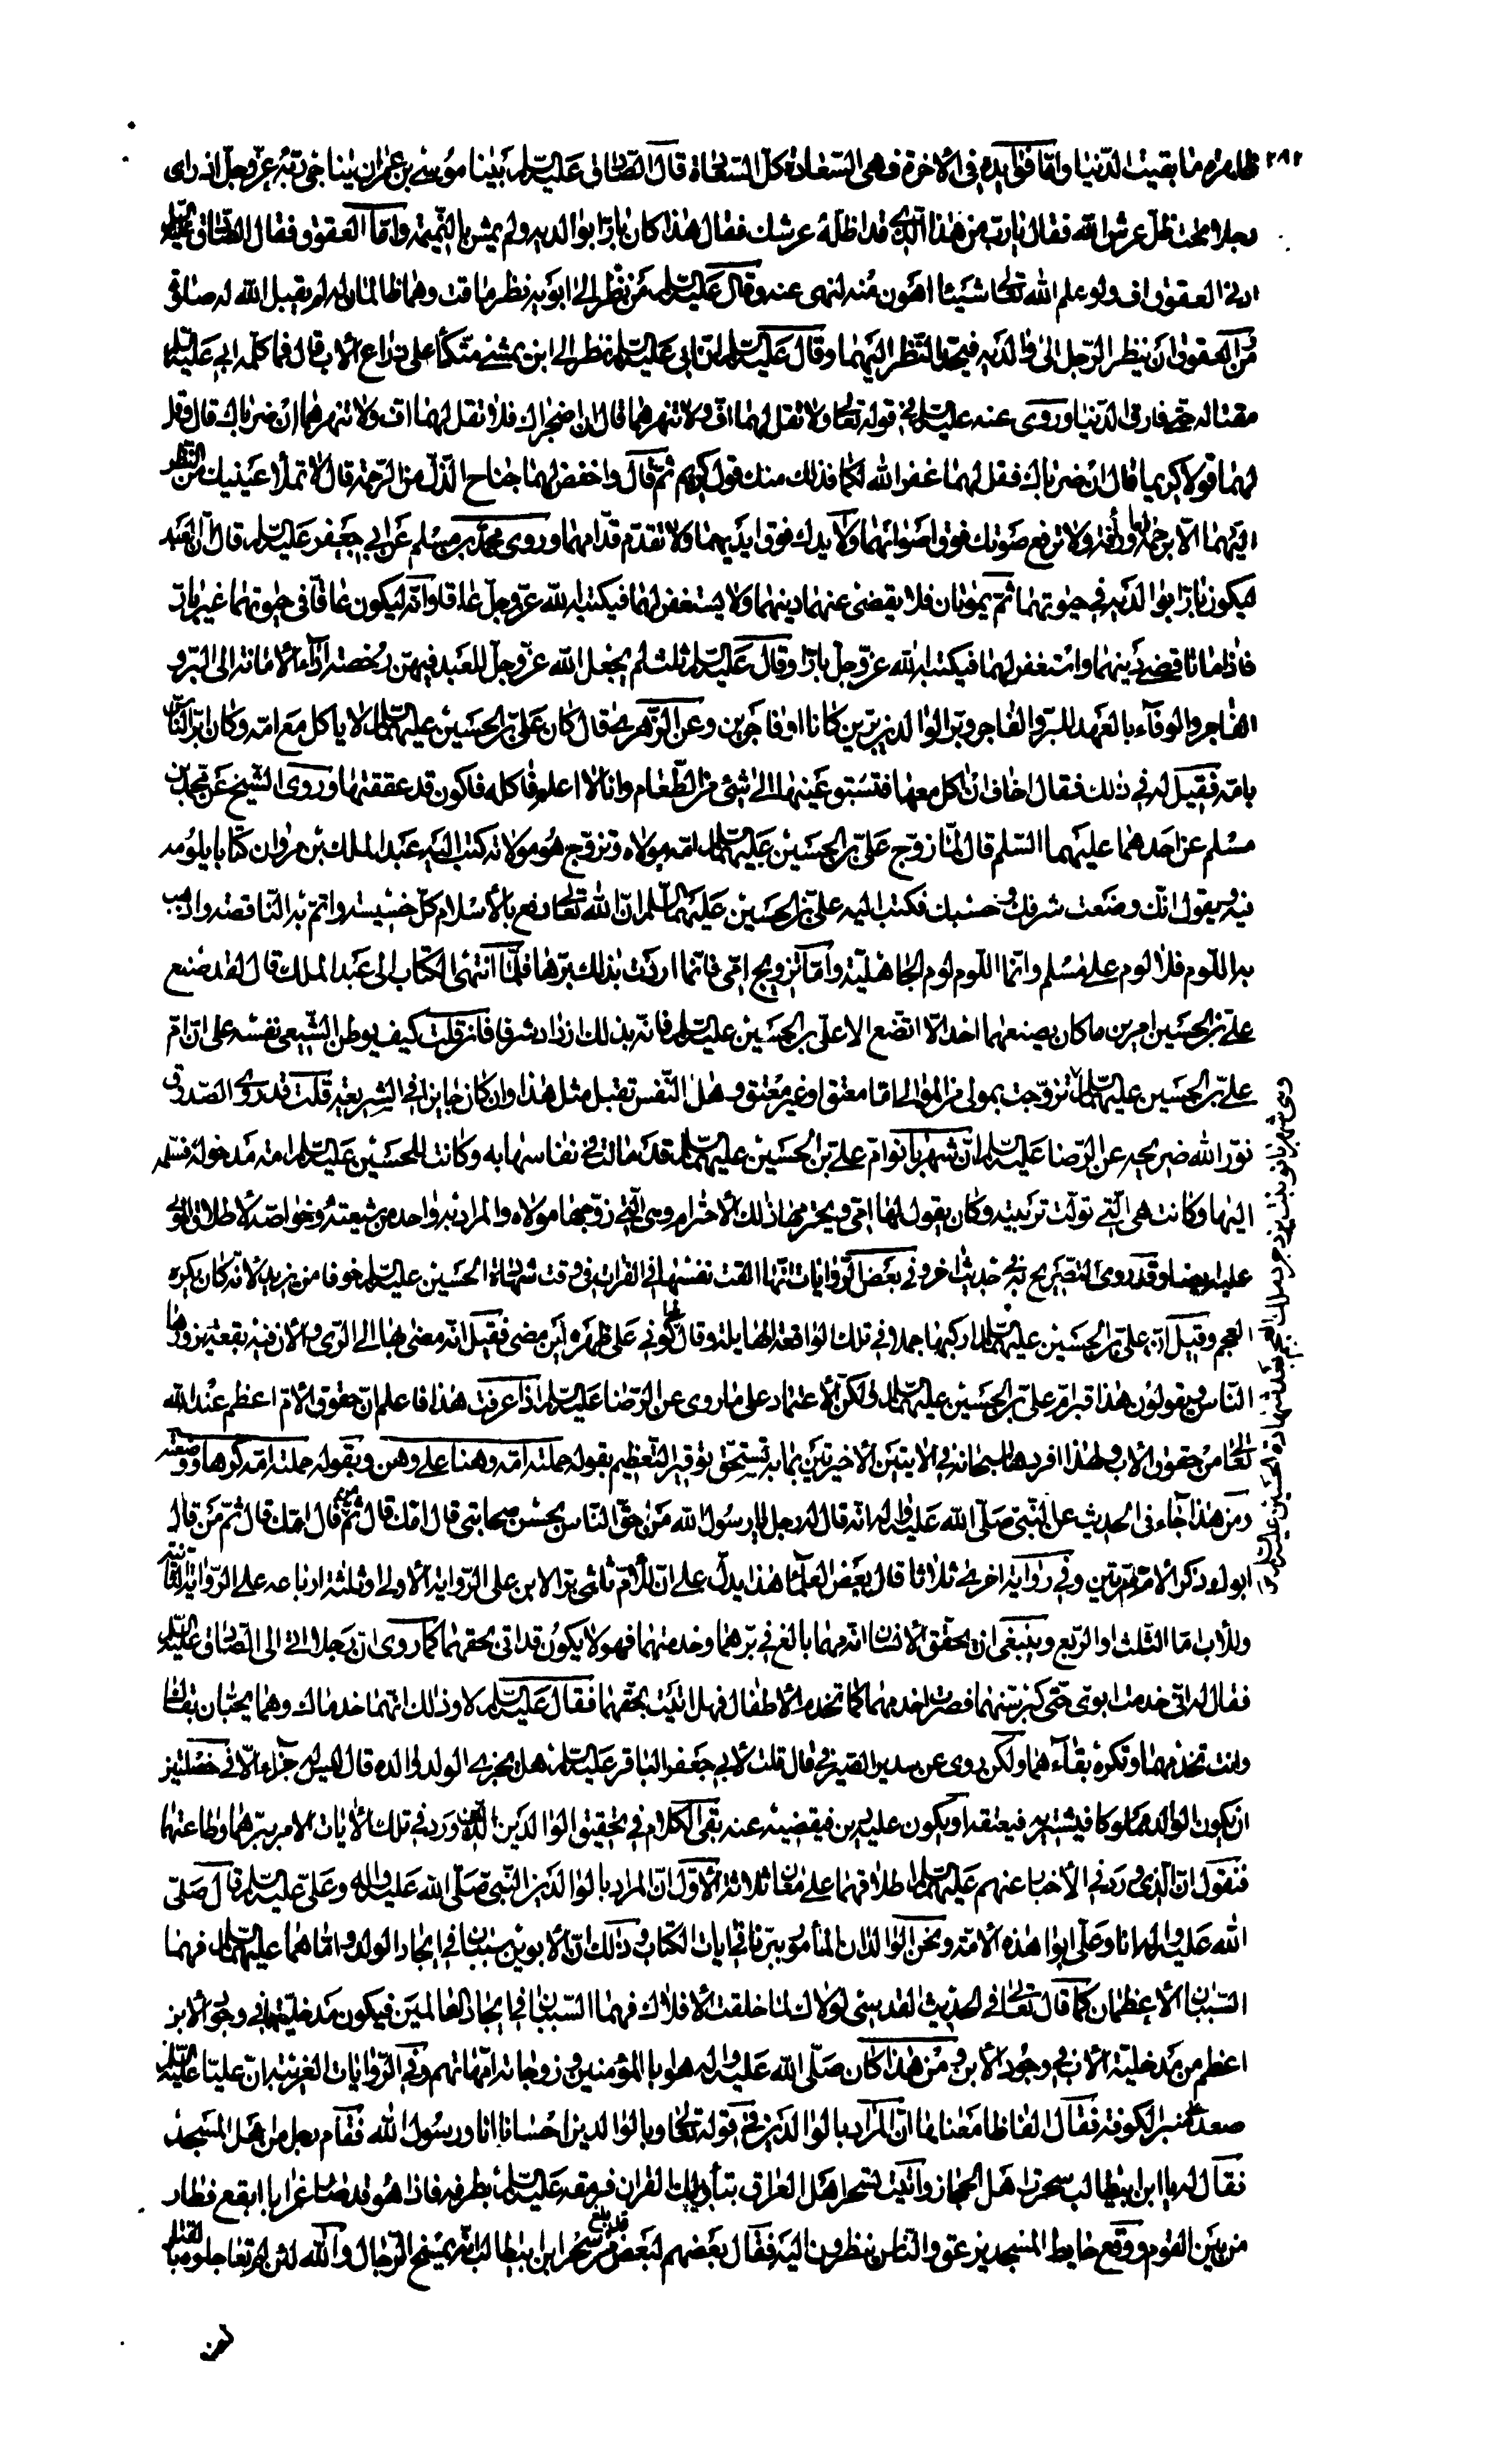 ٢٨٢ ظاهرة ما بقيت الدنيا وامّا فوائده في الأخرة فهى السّعادة كلّ السعادة قال الصّادق عليه السلم بينا موسى بن عمران يناجى ربّه عزّ وجلّ اذ راى
رجلا تحت ظل عرش الله فقال يا ربّ من هذا الذي قد اظلّه عرشك فقال هذا كان بارّا بوالديه ولم يمش بالنّميمة وامّا العقوق فقال الصّادق عليه السلم
ادنى العقوق اف ولو علم الله تعالى شيئا اهون منه لنهى عنه وقال عليه السلم من نظر الى ابويه نظر ماقت وهما ظالمان له لم يقبل الله له صلوة
من العقوق ان ينظر الرّجل الى والديه فيحد النّظر اليهما وقال عليه السلم انّ ابى عليه السلم نظر الى ابن يمشى متّكأ على ذراع الأب قال فما كلّمه ابي عليه السلم
مقتا له حتى فارق الدّنيا وروى عنه عليه السلم في قوله تعالى ولا تقل لهما افّ ولا تنهرهما قال ان اضجراك فلا تقل لهما اف ولا تنهرهما ان ضرباك قال وقل
لهما قولا كريما قال ان ضرباك فقل لهما غفر الله لكما فذلك منك قول كريم ثمّ قال واخفض لهما جناح الذّلّ من الرّحمة قال لا تملأ عينيك من النّظر
اليهما الّا برحمة ورأفة ولا ترفع صوتك فوق اصواتهما ولا يدك فوق ايديهما ولا تقدّم قدّامهما وروى محمّد بن مسلم عن ابي جعفر عليه السلم قال انّ العبد
ليكون بارّا بوالديه في حيوتهما ثمّ يموتان فلا يقضى عنهما دينهما ولا يستغفر لهما فيكتبه الله عزّ وجلّ عاقا وانّه ليكون عاقّا في حيوتهما غير بارّ
فاذا ماتا قضى دينهما واستغفر لهما فيكتبه الله عزّ وجلّ بارّا وقال عليه السلم ثلث لم يجعل الله عزّ وجلّ للعبد فيهنّ رخصة اداء الأمانة الى البرّ و
الفاجر والوفاء بالعهد للبرّ والفاجر وبرّ الوالدين برّين كانا او فاجرين وعن الزّهري قال كان عليّ بن الحسين عليهما السلم لا ياكل مع امّه وكان ابرّ النّاس
بامّه فقيل له في ذلك فقال اخاف ان اكل معها فتسبق عينها الى شئ من الطّعام وانا لا اعلم فاكله فاكون قد عققتها وروى الشّيخ عن محمّد بن
مسلم عن احدهما عليهما السّلم قال لمّا زوّج علىّ بن الحسين عليهما السلم امّه مولاه وتزوج هو مولاته كتب اليه عبد الملك بن مروان كتابا يلومه
فيه ويقول انّك وضعت شرفك وحسبك فكتب اليه علىّ بن الحسين عليهما السلم انّ الله تعالى رفع بالأسلام كلّ خسيسة واتمّ به النّاقصة واذهب
به اللّوم فلا لوم على مسلم وانّما اللّوم لوم الجاهليّة وامّا تزويج امّي فانّما اردت بذلك برّها فلمّا انتهى الكتاب الى عبد الملك قال لقد صنع
عليّ بن الحسين امرين ما كان يصنعهما احد الّا اتّضع الا علىّ بن الحسين عليه السلم فانّه بذلك ازداد شرفا فان قلت كيف يوطن الشّيعى نفسه على انّ امّ
عليّ بن الحسين عليهما السلم تزوّجت بمولى من الموالى امّا معتق او غير معتق وهل النّفس تقبل مثل هذا وان كان جايزا في الشّريعة قلت قد روى الصّدوق
نوّر الله ضريحه عن الرّضا عليه السلم انّ شهربانو امّ علىّ بن الحسين عليهما السلم قد ماتت في نفاسها به وكانت للحسين عليه السلم امة مدخولة فسلّمه
اليها وكانت هى الّتى تولّت تربيته وكان يقول لها امّي ويحترمها ذلك الأحترام وهى الّتى زوّجها مولاه والمراد به واحد من شيعته وخواصّه لأطلاق المولى
عليه ايضا وقد روى التّصريح به في حديث اخر وفي بعض الرّوايات انّها القت نفسها في الفرات في وقت شهادة الحسين عليه السلم خوفا من يزيد لأنّه كان يكره
العجم وقيل انّ علىّ بن الحسين عليهما السلم اركبها جملا في تلك الواقعة الهايلة وقال لها كونى على ظهره اين مضى فقيل انّه مضى بها الى الرّى والأن فيه بقعة يزورها
النّاس يقولون هذا قبر امّ علىّ بن الحسين عليهما السلم ولكن الأعتماد على ما روى عن الرّضا عليه السلم اذا عرفت هذا فاعلم انّ حقوق الأمّ اعظم عند الله
تعالى من حقوق الأب ولهذا افردها سبحانه في الايتين الأخيرتين بما به تستحقّ توقير التّعظيم بقوله حملته امّه وهنا على وهن وبقوله حملته امّه كرها ووضعته
ومن هذا جاء في الحديث عن النّبى صلّى الله عليه واله انّه قال له رجل يا رسول الله من احقّ النّاس بحسن صحابتى قال امّك قال ثمّ من قال امّك قال ثمّ من قال
ابوك وذكر الأمّ مرّتين وفي رواية اخرى ثلاثا قال بعض العلماء هذا يدلّ على انّ للأمّ ثلثى برّ الابن على الرّواية الأولى وثلثة ارباعه على الرّواية الثّانية
وللأب امّا الثّلث او الرّبع وينبغى ان يحقق الأنسان انّه مهما بالغ في برّهما وخدمتهما فهو لا يكون قد اتى بحقهما كما روى انّ رجلا اتى الى الصّادق عليه السلم
فقال له انّى خدمت ابوى حتّى كبر سنهما فصرت اخدمهما كما تخدم الأطفال فهل اتيت بحقّهما فقال عليه السلم لا وذلك انّهما خدماك وهما يحبّان بقاك
وانت تخدمهما وتكره بقاءهما ولكن روى عن سدير الصّيرفي قال قلت لأبي جعفر الباقر عليه السلم هل يجزى الولد والده قال ليس له جزاء الّا في خصلتين
ان يكون الوالد مملوكا فيشتريه فيعتقه او يكون عليه دين فيقضيه عنه بقى الكلام في تحقيق الوالدين الّذين ورد في تلك الأيات الامر ببرّهما وطاعتهما
فنقول انّ الّذى ورد في الأخبار عنهم عليهم السلم اطلاقهما على معان ثلاثة الأوّل انّ المراد بالوالدين النّبى صلّى الله عليه واله وعلىّ عليه السلم قال صلّى
الله عليه واله انا وعلىّ ابوا هذه الأمّة ونحن الوالدان المأمور ببرّنا في ايات الكتاب وذلك انّ الأبوين سببان في ايجاد الولد وامّا هما عليهما السلم فهما
السّببان الأعظمان كما قال تعالى في الحديث القدسى لولاك لما خلقت الأفلاك فهما السّببان في ايجاد العالمين فيكون مدخليّتهما في وجود الأبن
اعظم من مدخليّة الأب في وجود الأبن ومن هذا كان صلّى الله عليه واله هو ابا المؤمنين وزوجاته امّهاتهم وفي الرّوايات الغريبة انّ عليّا عليه السلم
صعد منبر الكوفة فقال الفاظا معناها انّ المراد بالوالدين في قوله تعالى وبالوالدين احسانا انا ورسول الله فقام رجل من اهل المسجد
فقال له يا ابن ابيطالب سحرت اهل الحجاز واتيت لتسحر اهل العراق بتأويلك القران فرمقه عليه السلم بطرفه فاذا هو قد صار غرابا ابقع فطار
من بين القوم ووقع على حايط المسجد يزعق والنّاس ينظرون اليه فقال بعضهم لبعض قد بلغ من سحر ابن ابيطالب انّه يمسخ الرّجال والله لئن لم تعاجلوه بالقتل
وهى شهربانو بنت يزدجرد ملك العجم